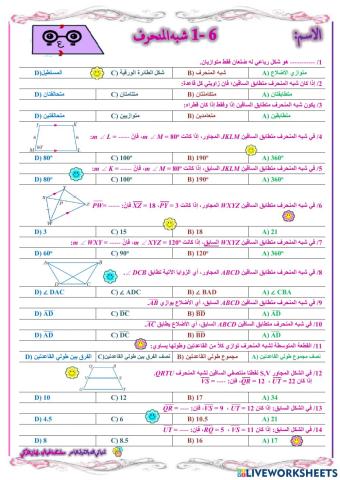 الاسم:
6-1 شبه المنحرف
1/ ---------- هو شكل رباعي له ضلعان فقط متوازيان.
A) متوازي الاضلاع B) شبه المنحرف C) شكل الطائرة الورقية D) المستطيل
2/ إذا كان شبه المنحرف متطابق الساقين، فإن زاويتي كل قاعدة:
A) متطابقتان B) متتامتان C) متكاملتان D) متحالفتان
3/ يكون شبه المنحرف متطابق الساقين إذا وفقط إذا كان قطراه:
A) متطابقين B) متعامدين C) متوازيين D)
4/ في شبه المنحرف متطابق الساقين JKLM المجاور، إذا كانت m ∠ M = 80° فإن ---- = m ∠ L:
A) 360° B) 190° C) 100° D) 80°
5/ في شبه المنحرف متطابق الساقين JKLM السابق، إذا كانت m ∠ M = 80° فإن ---- = m ∠ K:
A) 360° B) 190° C) 100° D) 80°
6/ في شبه المنحرف متطابق الساقين WXYZ المجاور، إذا كان XZ = 18 ,PY = 3 فإن: ---- =PW
A) 21 B) 18 C) 15 D) 3
7/ في شبه المنحرف متطابق الساقين WXYZ السابق، إذا كانت m ∠ XYZ = 120° فإن ---- = m ∠ WXY:
A) 360° B) 120° C) 90° D) 60°
8/ في شبه المنحرف متطابق الساقين ABCD المجاور، أي الزوايا الاتية تطابق DCB ∠
A) ∠ CBA B) ∠ BAD C) ∠ ADC D) ∠ DAC
9/ في شبه المنحرف متطابق الساقين ABCD السابق، أي الاضلاع يوازي AB
A) AD B) BD C) DC D) AD
10/ في شبه المنحرف متطابق الساقين ABCD السابق، أي الاضلاع يطابق AC
A) AD B) BD C) DC D) AD
11/ القطعة المتوسطة لشبه المنحرف توازي كلاً من القاعدتين وطولها يساوي:
A) نصف مجموع طولي القاعدتين B) مجموع طولي القاعدتين C) نصف الفرق بين طولي القاعدتين D) الفرق بين طولي القاعدتين
12/ في الشكل المجاور S,V نقطتا منتصفي الساقين لشبه المنحرف QRTU.
إذا كان QR = 12 ، UT = 22 فإن: ---- = VS
A) 17 B) 34 C) 12 D) 10
13/ في الشكل السابق: إذا كان VS = 9 ، UT = 12 فإن: ---- = QR
A) 21 B) 10.5 C) 6 D) 4.5
14/ في الشكل السابق: إذا كان RQ = 5 ، VS = 11 فإن: ---- = UT
A) 17 B) 16 C) 8.5 D) 8
LIVEWORKSHEETS